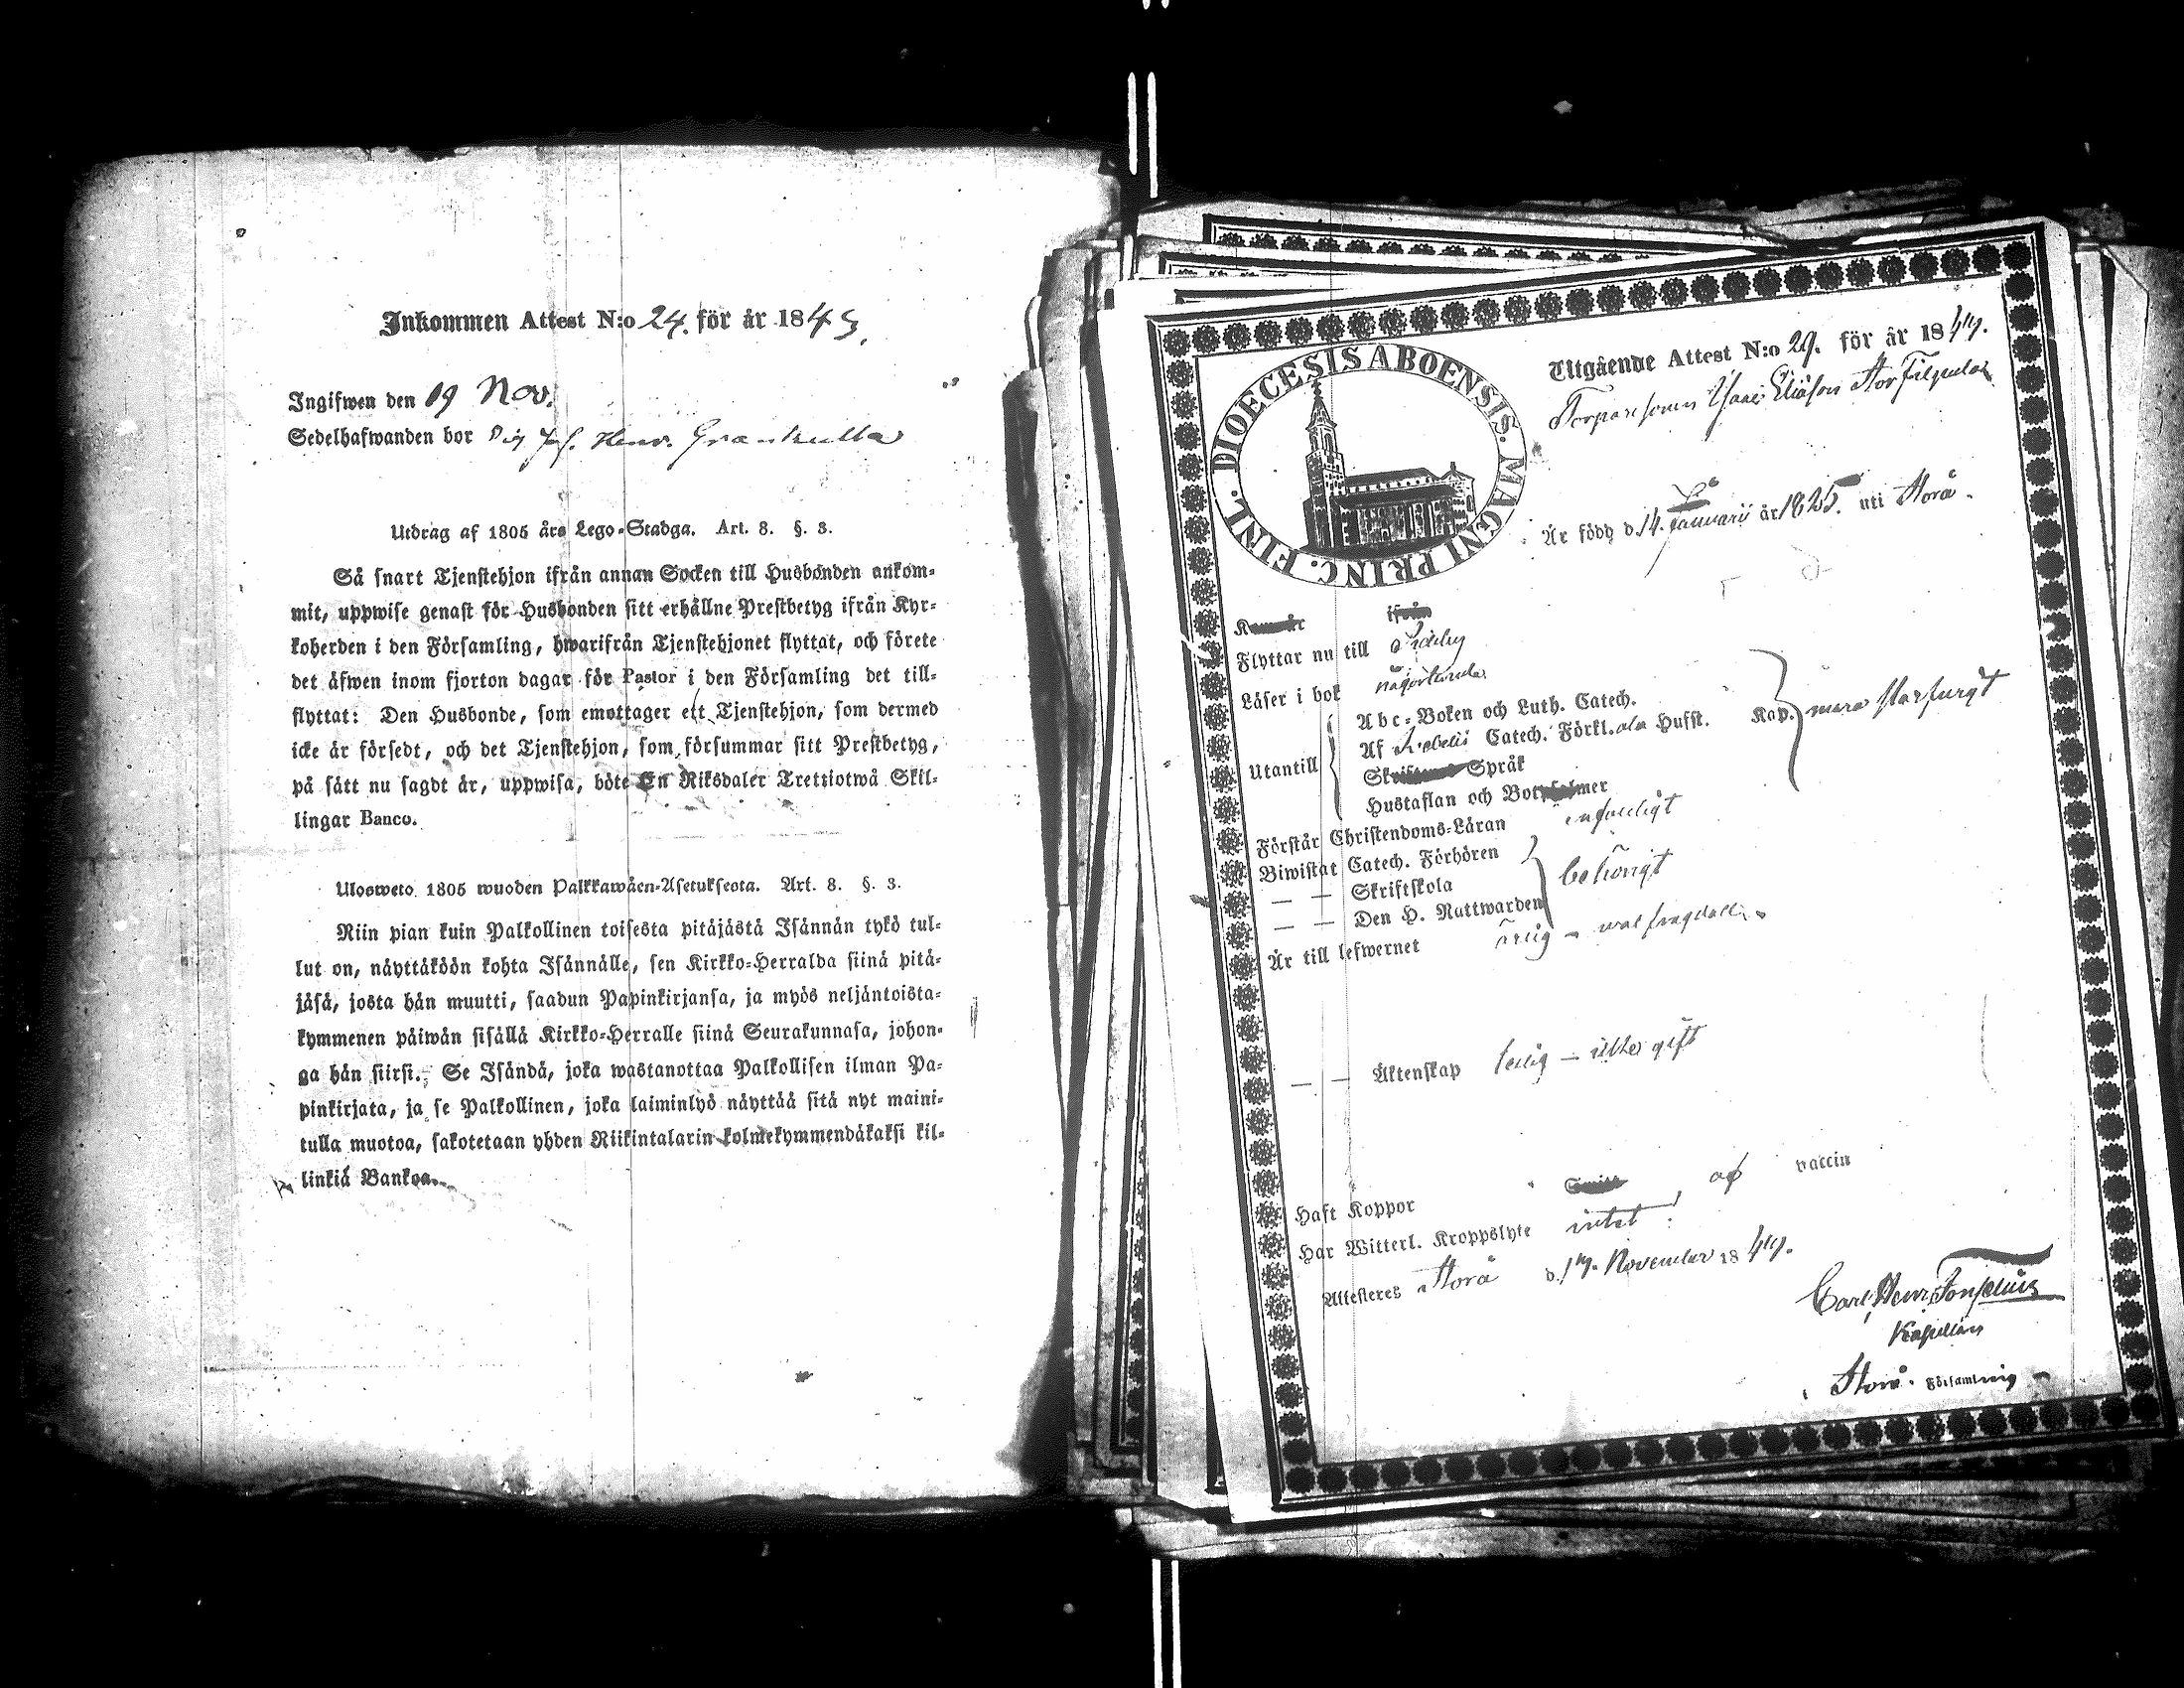 Inkommen Attest N:o 24. för år 1849.
Ingifwen den 19 Nov.
Sedelhafwanden bor Henr. Grankulla
Utdrag af 1805 års Lego-Stadga. Art. 8. §. 3.
Så snart Tjenstehjon ifrån annan Socken till Husbonden ankom-
mit, uppwise genast för Husbonden sitt erhållne Prestbetyg ifrån Kyr-
koherden i den Församling, hwarifrån Tjenstehjonet flyttat, och förete
det äfwen inom fjorton dagar för Pastor i den Församling det till-
flyttat: Den Husbonde, som emottager ett Tjenstehjon, som dermed
icke är försedt, och det Tjenstehjon, som försummar sitt Prestbetyg,
på sätt nu sagdt är, uppwisa, böte En Riksdaler Trettiotwå Skil-
lingar Banco.
Ulosweto 1805 wuoden Palkkawäen-Asetuksesta. Art. 8. §. 3.
Niin pian kuin Palkollinen toisesta pitäjästä Isännän tykö tul-
lut on, näyttäköön kohta Isännälle, sen Kirkko-Herralda siinä pitä-
jäsä, josta hän muutti, saadun Papinkirjansa, ja myös neljäntoista-
kymmenen päiwän sisällä Kirkko-Herralle siinä Seurakunnasa, johon-
ga hän siirsi. Se Isändä, joka wastanottaa Palkollisen ilman Pa-
pinkirjata, ja se Palkollinen, joka laiminlyö näyttää sitä nyt maini-
tulla muotoa, sakotetaan yhden Riikintalarin kolmekymmendäkaksi kil-
linkiä Bankoa.
DIOECESIS ABOENSIS. MAGNI PRINC. FINL.
Utgående Attest N:o 29. för år 1849.
Torparesonen Isaac Eliäson Storfilpula
Är född d. 14. Januarii år 1825. uti Storå.
ifrån
Flyttar nu till Sideby
Läser i bok någorlunda
Utantill
Abc-Boken och Luth. Catech.
Af Catech. Förkl. Hufst. Kap.
Språk
Hustaflan och Botpsalmer
Förstår Christendoms-Läran enfaldigt
Biwistat Catech. Förhören
— — Skriftskola behörigt
— — Den H. Nattwarden
Är till lefwernet ärlig - wälfrägdad.
— — Äktenskap ledig - icke gift
Haft Koppor af vaccin
Har Witterl. Kroppslyte intet.
Attesteres Storå d. 17. November 1849.
Carl Henr. Fonselius
Kapellan
i Storå Församling